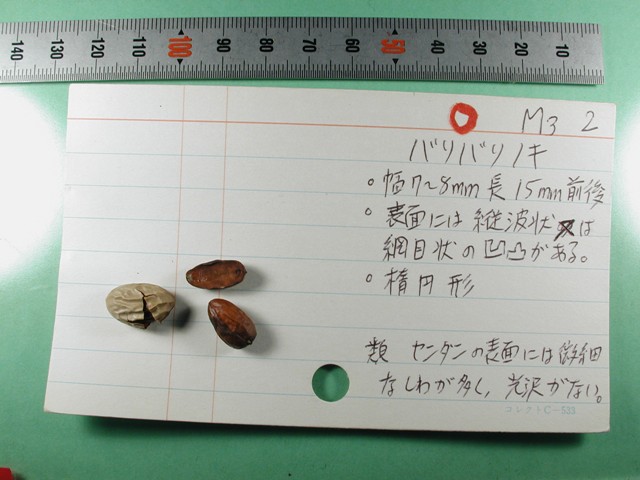 140 130 120 110 100 90 80 70 60 50 40 30 20 10
M3 2
バリバリノキ
。幅7~8mm 長15mm前後
。表面には縦波状又は
網目状の凹凸がある。
。楕円形
類 センダンの表面には微細
なしわが多く、光沢がない。
コレクト C-533